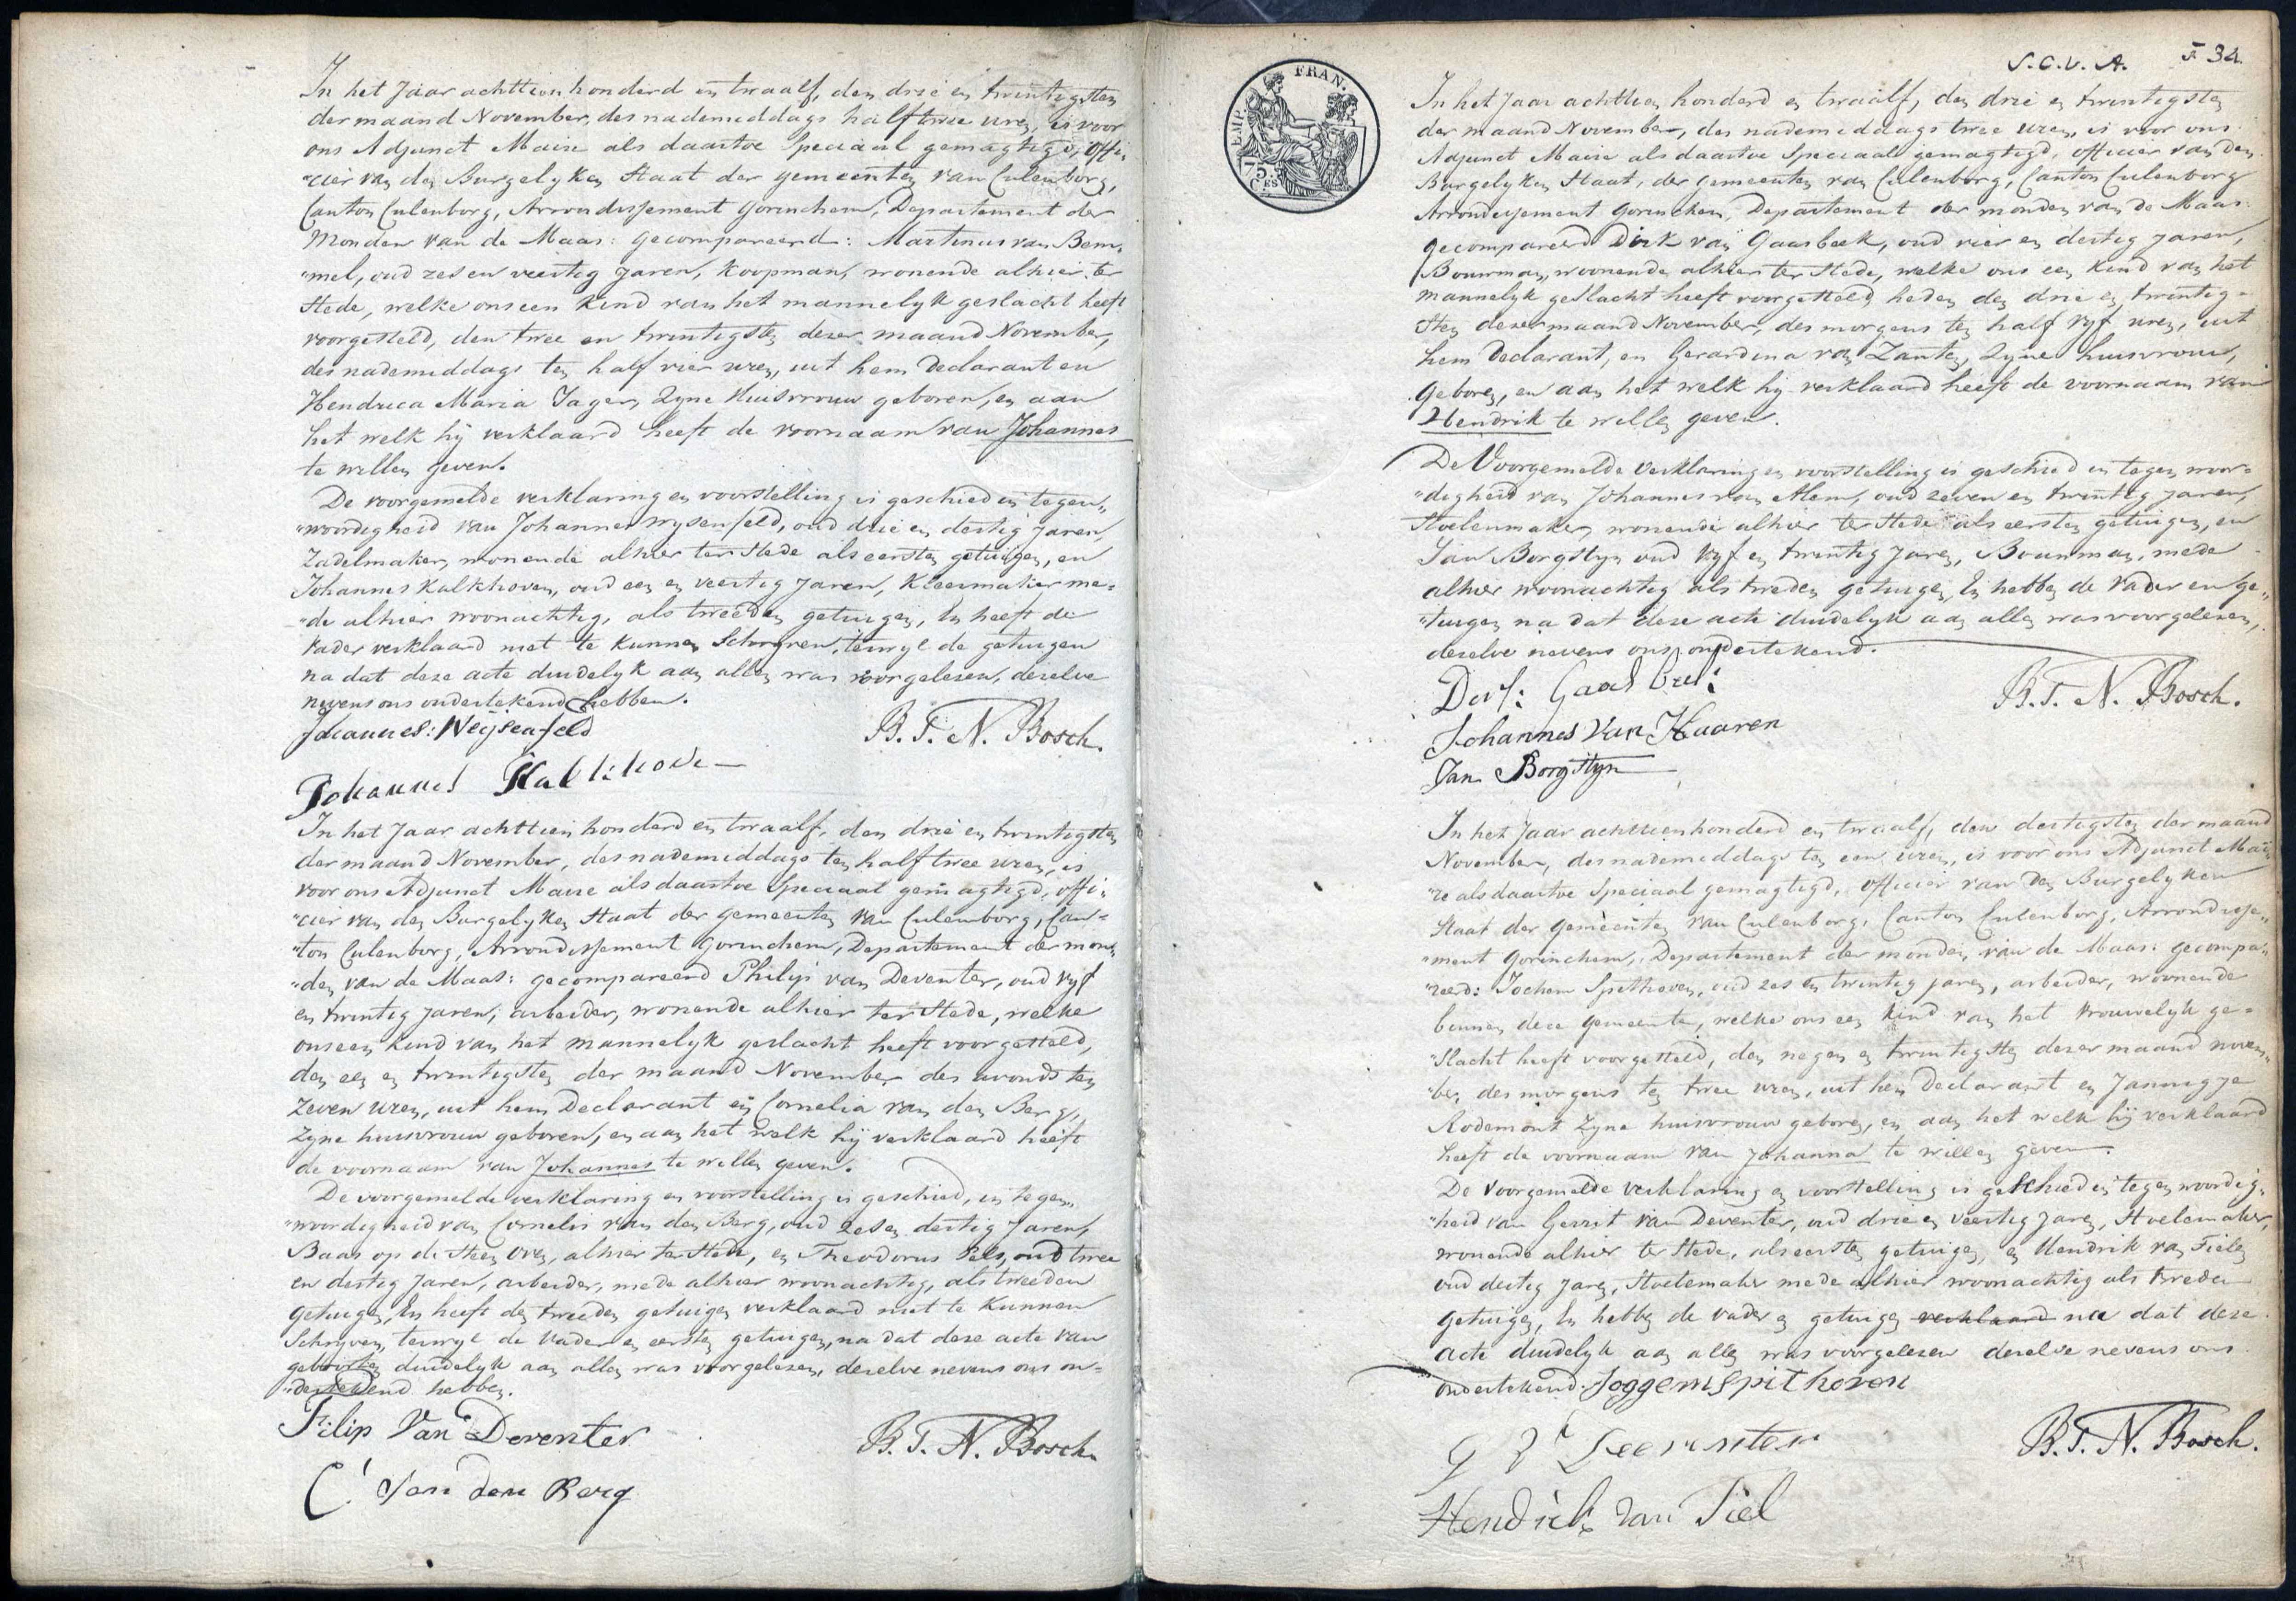 In het Jaar achttien honderd en twaalf, den drie en twintigsten
der maand November, des nademiddags half twee uren, is voor
ons Adjunct Maire als daartoe Speciaal gemagtigd, offi„
"cier van den Burgelyken Staat der gemeenten van Culenborg,
Canton Culenborg, Arrondissement Gorinchem, Departement der
Monden van de Maas: gecompareerd: Martinus van Bem„
"mel, oud zes en veertig Jaren, Koopman, wonende alhier ter
Stede, welke ons een Kind van het mannelyk geslacht heeft
voorgesteld, den twee en twintigsten dezer maand November,
des nademiddags ten half vier uren, uit hem Declarant en
Hendrica Maria Jager, Zyne Huisvrouw geboren, en aan
het welk hij verklaard heeft de voornaam van Johannes
te willen geven.
De voorgemelde verklaring en voorstelling is geschied in tegen„
"woordigheid van Johannes Wysenfeld, oud drie en dertig Jaren,
Zadelmaker, wonende alhier ter Stede als eersten getuigen, en
Johannes Kalkhoven, oud een en veertig Jaren, Kleermaker me=
"de alhier woonachtig, als tweeden getuigen, En heeft de
Vader verklaard niet te kunnen Schryven, terwyl de getuigen
na dat deze acte duidelyk aan allen was voorgelezen, dezelve
nevens ons ondertekend hebben.
Johannes: Weijsenfeld
B. T. N. Bosch.
Johannes Kalkhove
In het Jaar achttien honderd en twaalf, den drie en twintigsten
der maand November, des nademiddags ten half twee uren, is
voor ons Adjunct Maire als daartoe Speciaal gemagtigd, offi„
"cier van den Burgelyken Staat der gemeenten van Culenborg, Can=
"ton Culenborg, Arrondissement Gorinchem, Departement der mon„
"den van de Maas: gecompareerd Philip van Deventer, oud vyf
en twintig Jaren, arbeider, wonende alhier ter Stede, welke
ons een Kind van het mannelyk geslacht heeft voorgesteld,
den een en twintigsten der maand November des avonds ten
Zeven uren, uit hem Declarant en Cornelia van den Berg,
Zyne huisvrouw geboren, en aan het welk hij verklaard heeft
de voornaam van Johannes te willen geven.
De voorgemelde verklaring en voorstelling is geschied, in tegen„
"woordigheid van Cornelis van den Berg, oud zes en dertig Jaren,
Baas op de Steen Oven, alhier ter Stede, en Theodorus Pels, oud twee
en dertig Jaren, arbeider, mede alhier woonachtig, als tweeden
getuigen, En heeft den tweeden getuigen verklaard niet te Kunnen
Schryven, terwyl de Vader en eersten getuigen, na dat deze acte van
geboorten duidelyk aan allen was voorgelezen, dezelve nevens ons on=
"dertekend hebben.
Filip Van Deventer
B. T. N. Bosch.
C: Van den Berg
S. C. V. A. F 34.
EMP. FRAN.
75. CES
In het Jaar achttien honderd en twaalf, den drie en twintigsten
der maand November, des nademiddags twee uren, is voor ons
Adjunct Maire als daartoe Speciaal gemagtigd, officier van den
Burgelyken Staat, der gemeenten van Culenborg, Canton Culenborg
Arrondissement Gorinchem, Departement der monden van de Maas:
gecompareerd Dirk van Gaasbeek, oud vier en dertig Jaren,
Bouwman, woonende alhier ter Stede, welke ons een Kind van het
mannelyk geslacht heeft voorgesteld heden den drie en twintig=
Sten dezer maand November, des morgens ten half vyf uren, uit
hem Declarant, en Gerardina van Zanten, Zyne huisvrouw,
Geboren, en aan het welk hy verklaard heeft de voornaam van
Hendrik te willen geven.
De Voorgemelde verklaring en voorstelling is geschied in tegen woor=
"digheid van Johannes van Haren, oud zeven en twintig Jaren,
Stoelenmaker, wonende alhier ter Stede als eersten getuigen, en
Jan Borgstyn oud vyf en twintig Jaren, Bouwman, mede
alhier woonachtig als tweden getuigen, En hebben de Vader en ge„
"tuigen na dat deze acte duidelyk aan allen was voorgelezen,
dezelve nevens ons ondertekend.
B. T. N. Bosch.
Johannes Van Haaren
Jan Borgstyn
In het Jaar achttien honderd en twaalf, den dertigsten der maand
November, des nademiddags ten een uren, is voor ons Adjunct Mai„
"re als daartoe Speciaal gemagtigd, officier van den Burgelyken
Staat der gemeenten van Culenborg, Canton Culenborg, Arrondisse„
"ment Gorinchem, Departement der monden van de Maas: gecompa„
"reerd: Jochem Spithoven, oud zes en twintig jaren, arbeider, woonende
binnen deze Gemeente, welke ons een Kind van het Vrouwelyk ge=
"slacht heeft voorgesteld, den negen en twintigsten dezer maand novem„
"ber, des morgens ten twee uren, uit hem Declarant en Jannigje
Rodemont Zyne huisvrouw geboren, en aan het welk hij verklaard
heeft de voornaam van Johanna te willen geven.
De Voorgemelde verklaring en voorstelling is geschied in tegen woordig„
"heid van Gerrit van Deventer, oud drie en veertig Jaren, Stoelemaker,
wonende alhier ter Stede, als eersten getuigen, en Hendrik van Tielen
oud dertig Jaren, Stoelemaker mede alhier woonachtig als tweden
getuigen, En hebben de vader en getuigen verklaard na dat deze
acte duidelyk aan allen was voorgelezen dezelve nevens ons
ondertekend. Joggem Spithoven
B. T. N. Bosch.
Hendrik Van Tiel